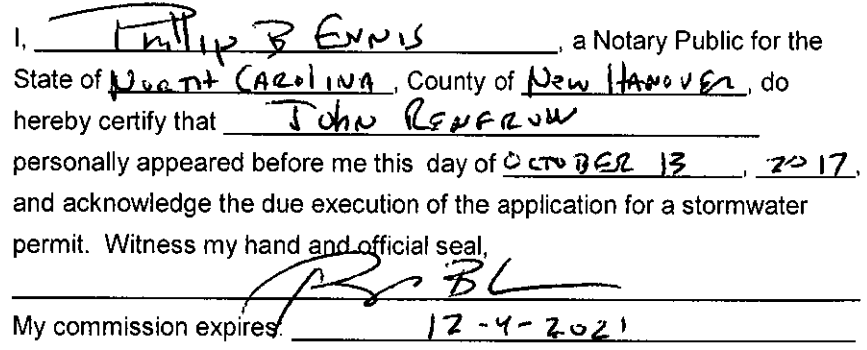 I, Phillip B ENNIS, a Notary Public for the
State of NORTH CAROLINA, County of New HANOVER, do
hereby certify that JOHN RENFROW
personally appeared before me this day of OCTOBER 13, 2017,
and acknowledge the due execution of the application for a stormwater
permit. Witness my hand and official seal,
My commission expires: 12-4-2021